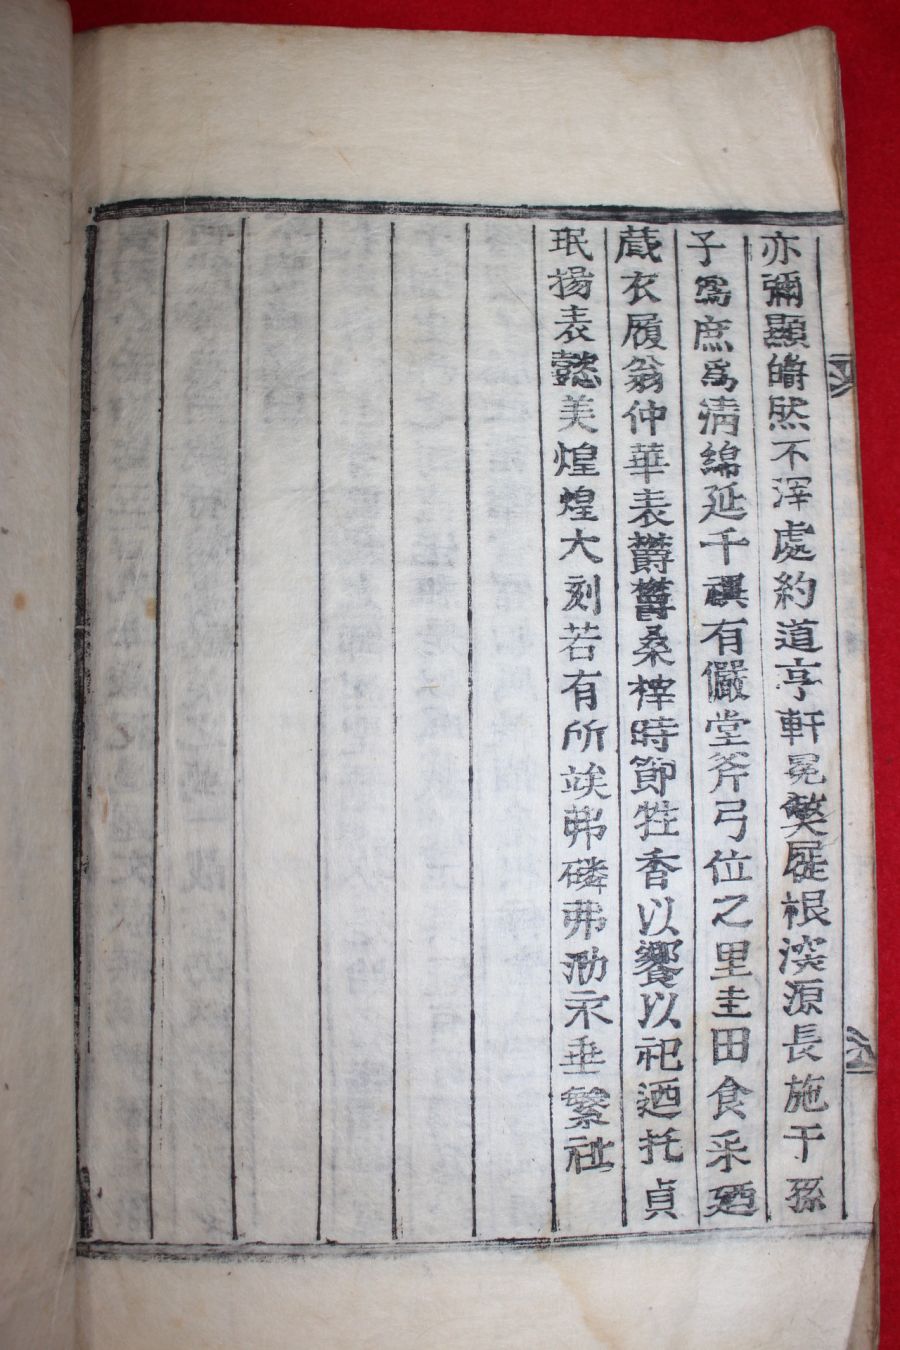 亦彌顯皭然不滓處約道亨軒冕獘屣根深源長施于孫
子爲庶爲淸綿延千禩有儼堂斧弓位之里圭田食采廼
蔵衣履翁仲華表欝欝桑梓時節牲香以饗以祀迺托貞
珉揚表懿美煌煌大刻若有所竢弗磷弗泐永垂繁祉